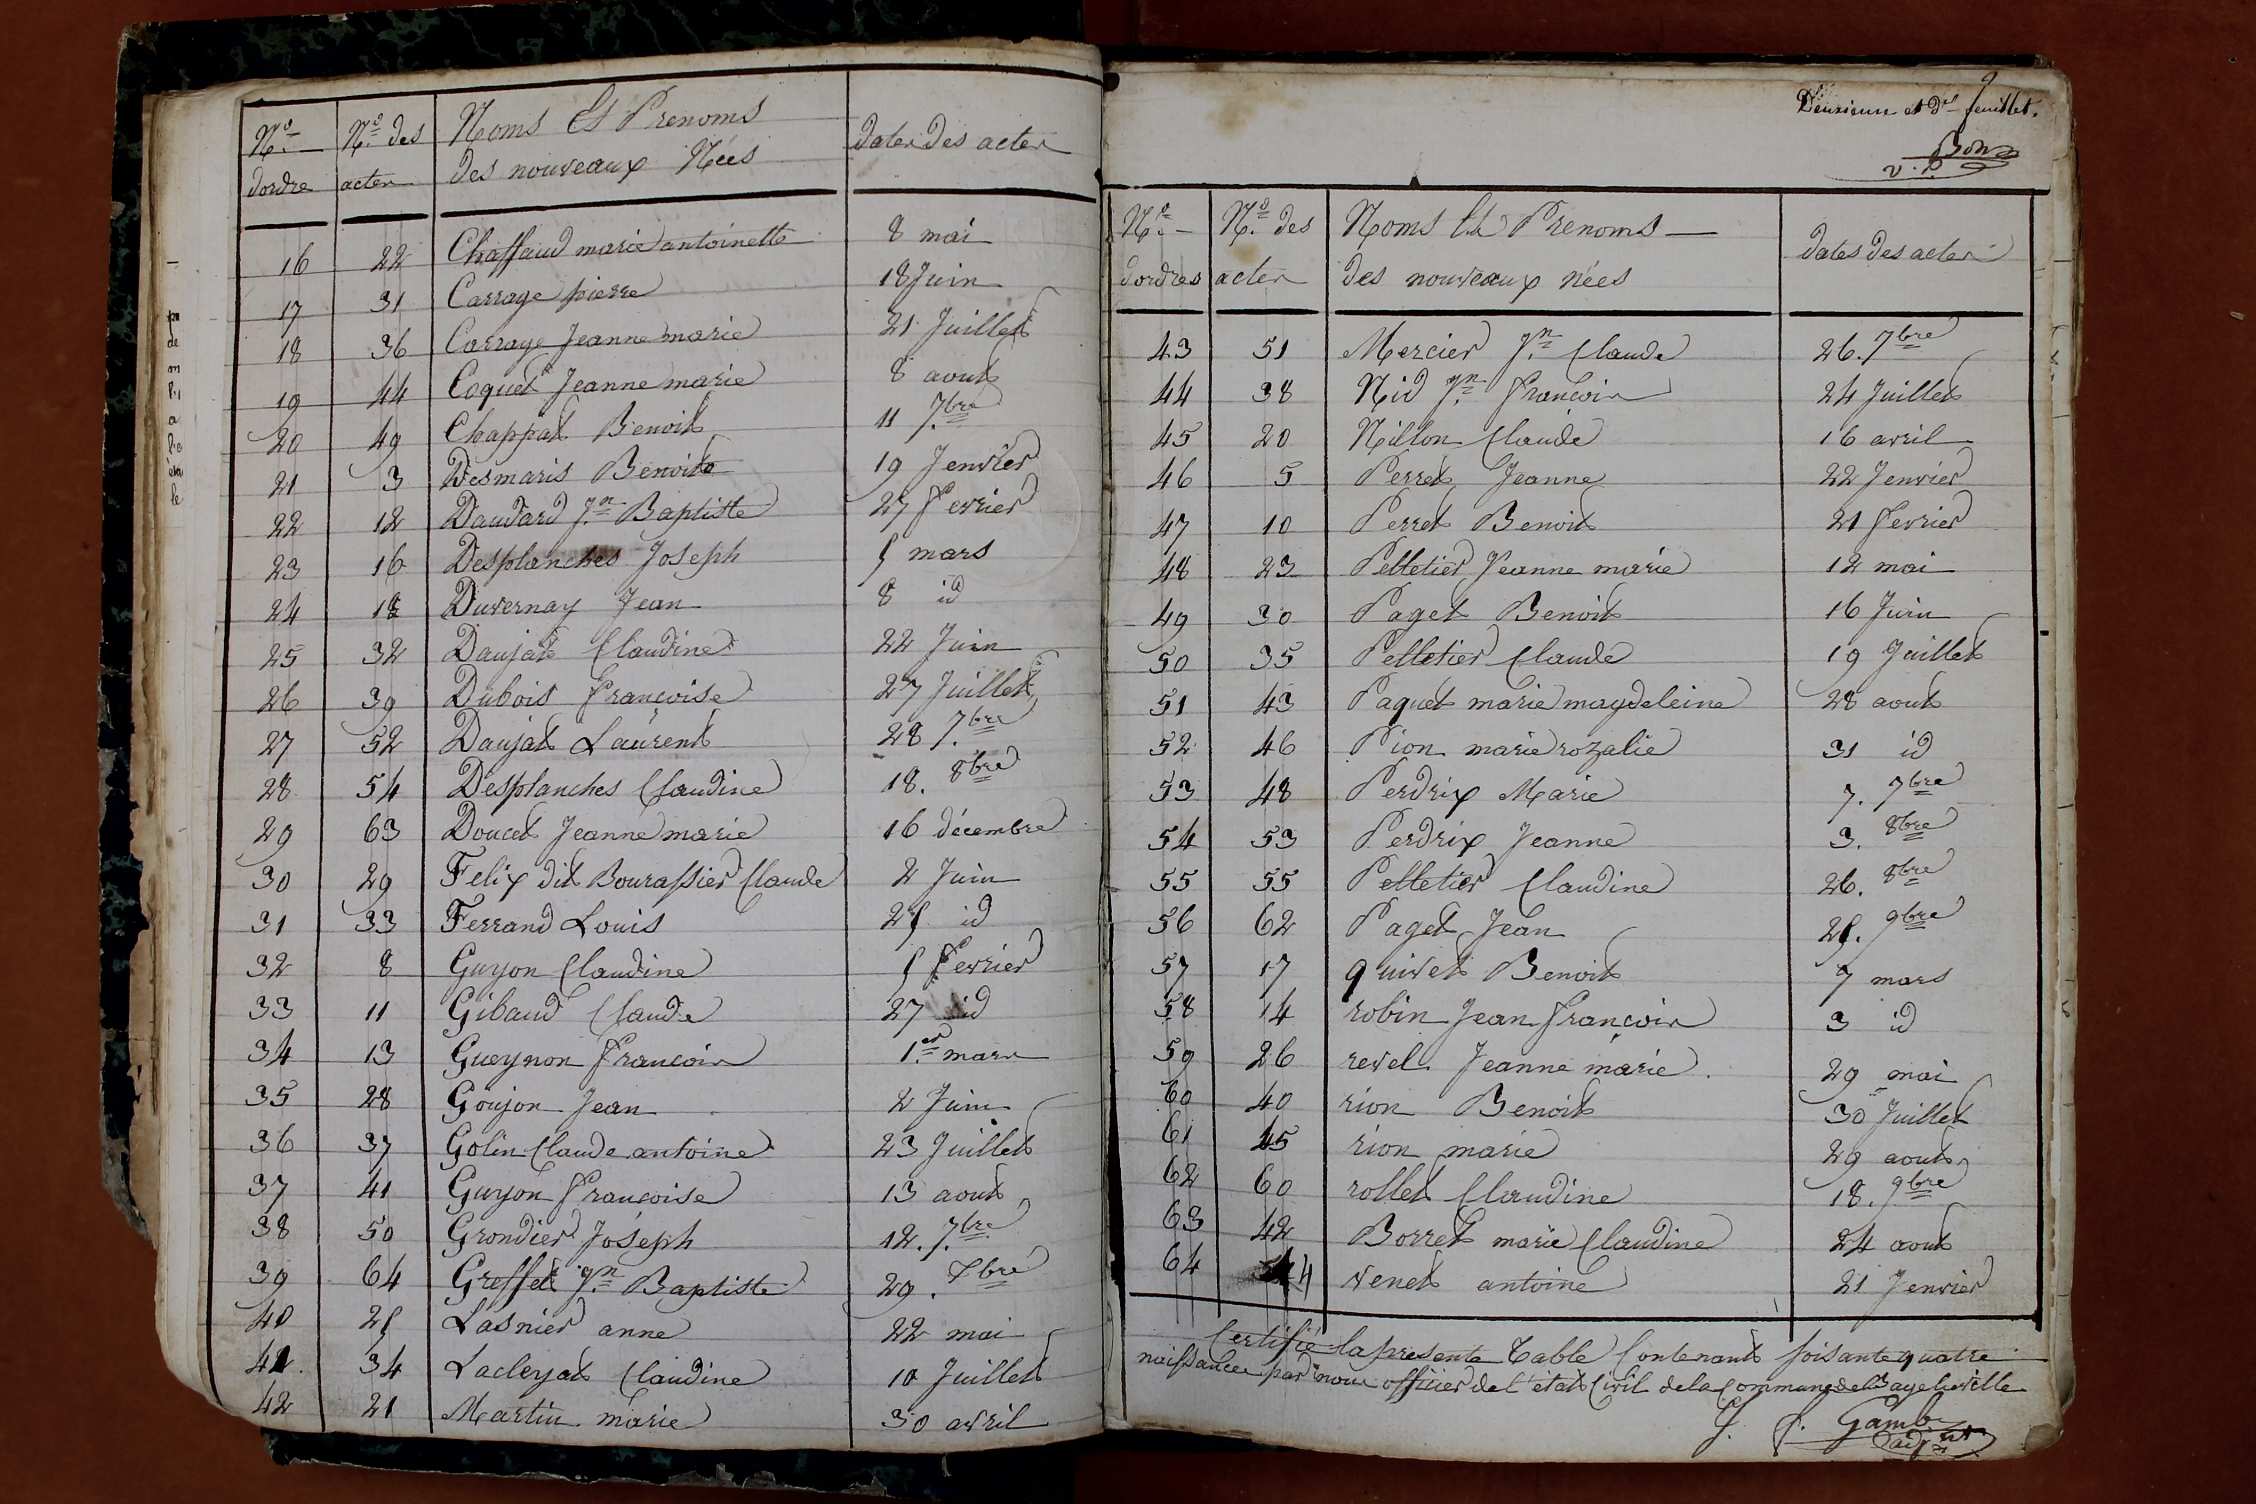 N.os N.os des Noms Et Prenoms dates des actes
dordre actes des nouveaux Nées
16 22 Chaffaud marie antoinette 8 mai
17 31 Carrage pierre 18 Juin
18 36 Carrage Jeanne marie 21 Juillet
19 44 Coquet Jeanne marie 8 aout
20 49 Chappat Benoit 11 7.bre
21 3 Desmaris Benoite 19 Jenvier
22 12 Daudard J.n Baptiste 27 fevrier
23 16 Desplanches Joseph 5 mars
24 18 Duvernay Jean 8 id
25 32 Daujat Claudine 22 Juin
26 39 Dubois françoise 27 Juillet
27 52 Daujat Laurent 28 7.bre
28 54 Desplanches Claudine 18. 8bre
29 63 Doucet Jeanne marie 16 décembre
30 29 Felix dit Bourassier Claude 2 Juin
31 33 Ferrand Louis 25 id
32 8 Guyon Claudine 5 fevrier
33 11 Gibaud Claude 27 id
34 13 Gueynon francois 1.er mars
35 28 Goujon Jean 2 Juin
36 37 Golin Claude antoine 23 Juillet
37 41 Guyon françoise 13 aout
38 50 Grondier Joseph 12. 7.bre
39 64 Greffet J.n Baptiste 29.
40 25 Lasnier anne 22 mai
41. 34 Lacleyat Claudine 10 Juillet
42 21 Martin marie 30 avril
2
Deuxieme et d.er feuillet.
Bon
v. P.
N.os N.os des Noms Et Prenoms dates des actes
dordres actes des nouveaux nées
43 51 Mercier J.n Claude 26. 7bre
44 38 Nid J.n francois 24 Juillet
45 20 Nillon Claude 16 avril
46 5 Perret Jeanne 22 Jenvier
47 10 Perret Benoit 21 fevrier
48 23 Pelletier Jeanne marie 12 mai
49 30 Paget Benoit 16 Juin
50 35 Pelletier Claude 19 Juillet
51 43 Paquet marie magdeleine 28 aout
52 46 Pion marie rozalie 31 id
53 48 Perdrix Marie 7. 7bre
54 53 Perdrix Jeanne 3. 8bre
55 55 Pelletier Claudine 26. 8bre
56 62 Paget Jean 25. 9bre
57 17 quivet Benoit 7 mars
58 14 robin Jean francois 3 id
59 26 revel Jeanne marie 29 mai
60 40 rion Benoit 30 Juillet
61 45 rion marie 29 aout
62 60 rollet Claudine 18. 9bre
63 42 Borret marie Claudine 24 aout
64 4 venet antoine 21 Jenvier
Certifié la presente Table Contenant soisante quatre
naissances par nous officier de l'état Civil de la Commune de
Gambe
adjnt